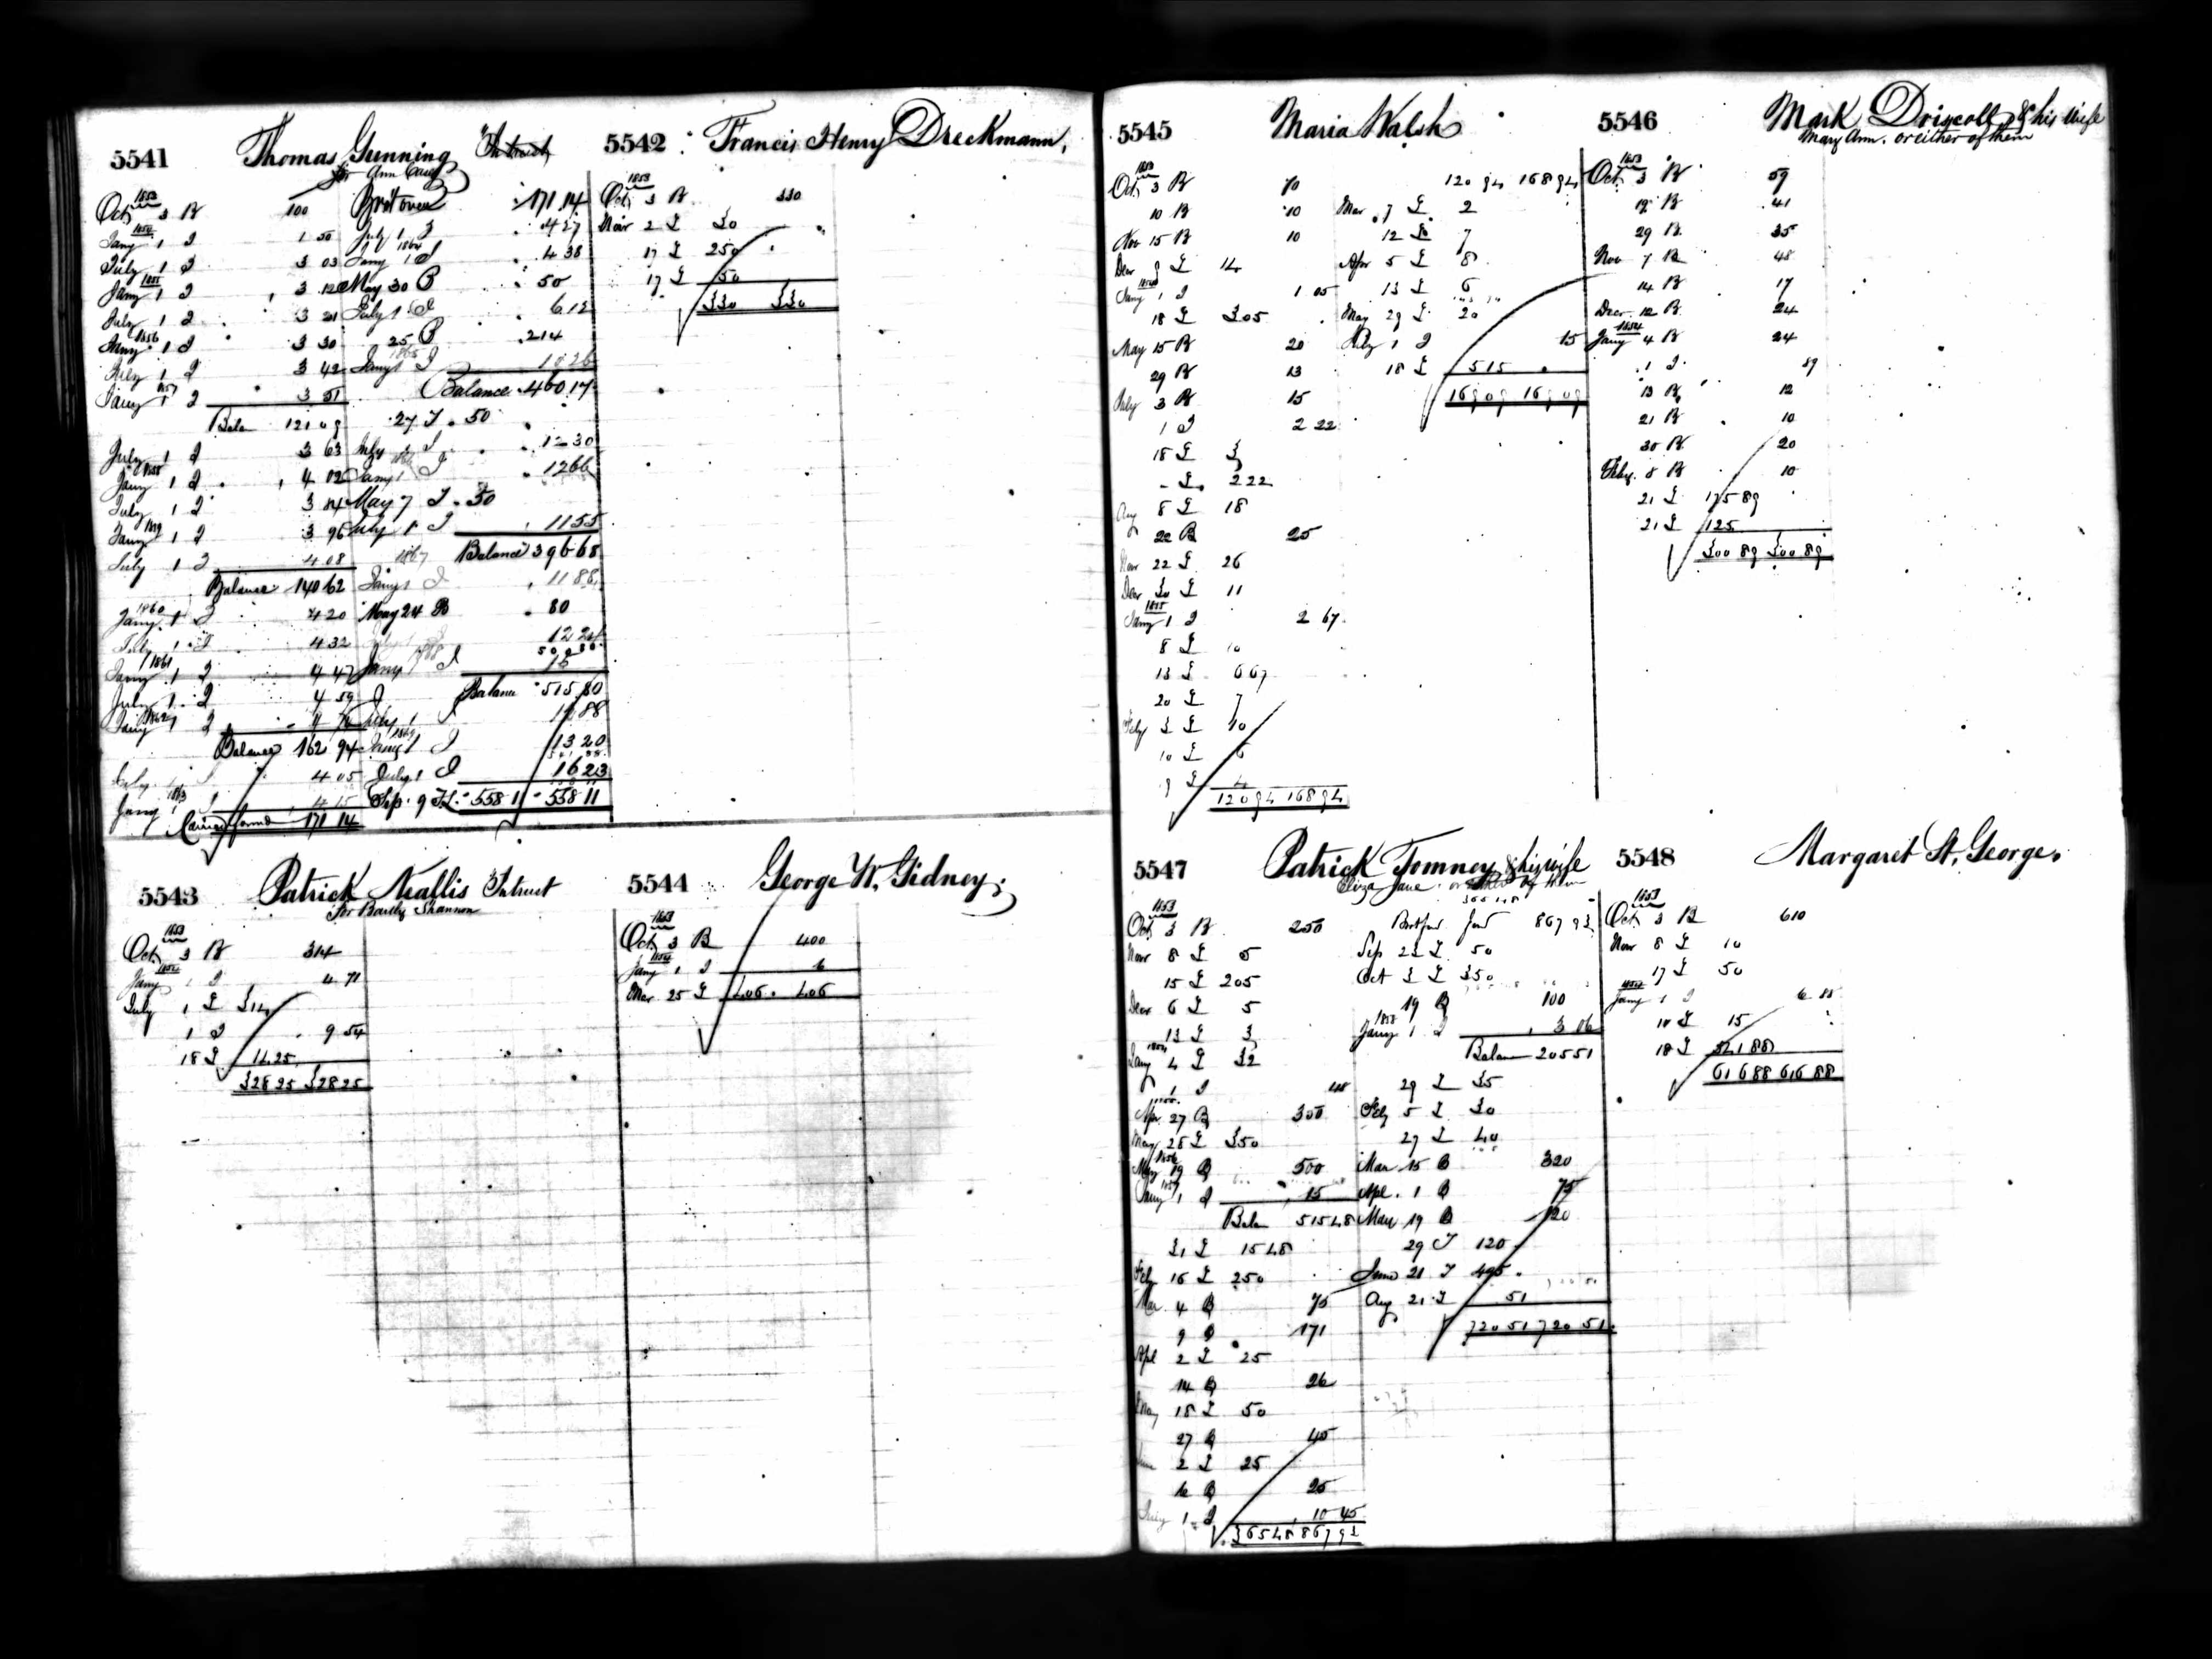 5541 Thomas Gunning Intrust
for Ann
1853
Oct 3 B 100
1854
Jany 1 I 1 50
July 1 I 3 03
1855
Jany 1 I 3 12
July 1 I 3 21
1856
Jany 1 I 3 30
July 1 I 3 42
1857
Jany 1 I 3 51
Balan 121 09
July 1 I 3 63
1858
Jany 1 I
July 1 I 3 84
1859
Jany 1 I 3 96
July 1 I 4 08
Balance 140 62
1860
Jany 1 I 4 20
July 1 I 4 32
1861
Jany 1 I 4 47
July 1 I 4 59
1862
Jany 1 I 4 74
Balance 162 94
July 1 I 4 05
1863
Jany 1 I 4 15
Carried forwd 171 14
Brot over 171.14
July 1 I 4 27
1864
Jany 1 I 4 38
May 30 B 50
July 1 I 6 12
25 B 214
1865
Jany 1 I 10 26
Balance 460 17
27 I 50
July 1 I 12 30
1866
Jany 1 I 12 66
May 7 I 50
July 1 I 11 55
Balance 396 68
1867
Jany 1 I 11 88
May 24 B 80
12 24
500 80
1868
Jany 1 I 15
Balance 515 80
July 1 I
1869
Jany 1 I 13 20
July 1 I 16 23
Sep 9 I 558 11 558 11
5542 Francis Henry Dreckmann,
1853
Oct 3 B 330
Novr 2 £ 30
17 £ 250
17 £ 50
330 330
5543 Patrick Neallis Intrust
for Bartly Shannon
1853
Oct 3 B 314
1854
Jany 1 I 4 71
July 1 £ 314
1 I 9 54
18 £ 14 25
328 25 328 25
5544 George W. Gidney;
1853
Oct 3 B 400
1854
Jany 1 I 6
Mar 25 £ 406 406
5545 Maria Walsh
1853
Oct 3 B 70
10 B 10
Nov 15 B 10
Decr 9 £ 14
1854
Jany 1 I 1 05
18 £ 305
May 15 B 20
29 B 13
July 3 B 15
1 I 2 22
18 £ 3
- £ 2 22
Aug 8 £ 18
22 B 25
Novr 22 £ 26
Decr 30 £ 11
1855
Jany 1 I 2 67
8 £ 10
13 £ 6 67
20 £ 7
Feby 3 £ 10
10 £ 6
9 £ 4
120 94 168 94
120 94 168 94
Mar 7 £ 2
12 £ 7
Apr 5 £ 8
13 £ 6
May 29 £ 20
July 1 I 15
18 £ 5 15
169 09 169 09
5546 Mark Driscoll, & his wife
Mary Ann. or either of them
1853
Oct 3 B 59
B 41
29 B 35
Nov 7 B 48
14 B 17
Decr 12 B 24
1854
Jany 4 B 24
1 I 89
13 B 12
21 B 10
30 B 20
Feby 8 B 10
21 £ 175 89
21 £ 125
300 89 300 89
5547 Patrick Tomney & his wife
Eliza Jane or either of them
1853
Oct 3 B 250
Novr 8 £ 5
15 £ 205
Decr 6 £ 5
13 £ 3
1854
Jany 4 £ 32
1 I 48
Apr 27 B 300
May 28 £ 350
1856
May 19 B 500
1857
Jany 1 I 15
Balan 515 48
31 £ 15 48
Feby 16 £ 250
Mar 4 B 75
9 B 171
Apl 2 £ 25
14 B 26
May 18 £ 50
27 B 45
June 2 £ 25
16 B 25
July 1 I 10 45
365 48 867 93
365 48
Brot forwd 867 93
Sep 23 £ 50
Oct 3 £ 350
19 B 100
1858
Jany 1 I 3 06
Balan 205 51
29 £ 35
Feby 5 £ 30
27 £ 40
Mar 15 B 320
Apl. 1 B 75
May 19 B 120
29 I 120
June 21 I 495
Aug 21 I 51
720 51 720 51
5548 Margaret St. George.
1853
Oct 3 B 610
Novr 8 £ 10
17 £ 50
1854
Jany 1 I 6 88
10 £ 15
18 £ 541 88
616 88 616 88